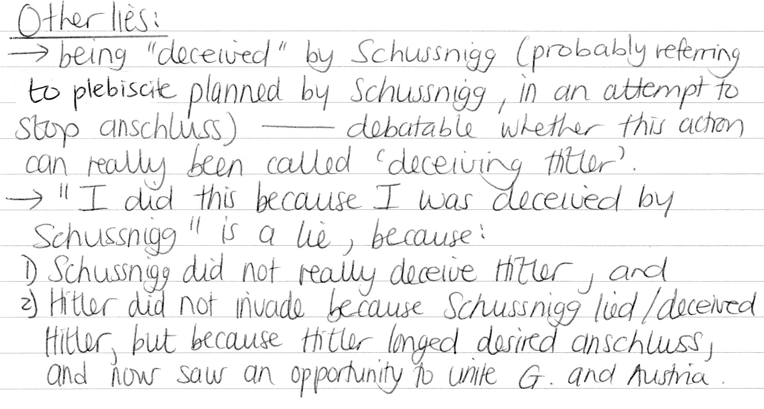 Other lies:
→ being "deceived" by Schussnigg (probably referring
to plebiscite planned by Schussnigg, in an attempt to
stop anschluss) —— debatable whether this action
can really been called 'deceiving Hitler'.
→ "I did this because I was deceived by
Schussnigg" is a lie, because:
1) Schussnigg did not really deceive Hitler, and
2) Hitler did not invade because Schussnigg lied/deceived
Hitler, but because Hitler longed desired anschluss,
and now saw an opportunity to unite G. and Austria.